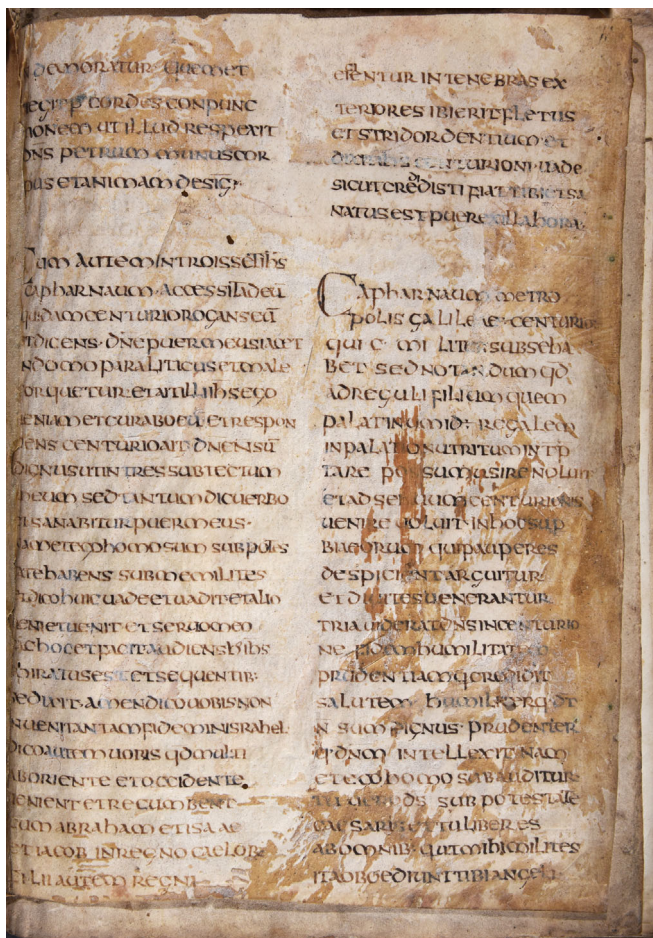 demoratur quem et
cordis conpunc
tionem ut illud respexit
dns petrum munuscor
pus et anima desig;
Cum autem introisset ihs
capharnaum accessit ad eu
quidam centurio rogans eu
et dicens dne puer meus iacet
in domo paraliticus et male
torquetur et ait illi ihs ego
ueniam et curabo eu et respon
dens centurio ait dne n su
dignus ut intres sub tectum
meum sed tantum dic uerbo
et sanabitur puer meus
nam et ego homo sum sub potes
tate habens sub me milites
et dico huic uade et uadit et alio
ueni et uenit et seruo meo
fac hoc et facit audiens h ihs
miratus est et sequentib:
se dixit amen dico uobis non
inueni tantam fidem in israhel
Dico autem uobis qd multi
ab oriente et occidente
uenient et recumbent
cum abraham et isa ac
et iacob in regno caelor
filii autem regni
eicientur in tenebras ex
teriores ibi erit fletus
et stridor dentium et
dixit ihs centurioni uade
sicut credidisti fiat tibi et sa
natus est puer ex illa hora
Capharnaum metro
polis galileae centurio
qui c milites subse ha
bet sed not n dum qd
ad reguli filium quem
palatinum id: regalem
in palatio nutritum intp
tare possumus ire noluit
et ad seruum centurionis
uenire uoluit in hoc sup
bia eorum qui pauperes
despicient arguitur
et diuites uenerantur
tria uiderat ens in centurio
ne fidem humilitatem
prudentiam q credidit
salutem humilis erq dt
n sum dignus prudenter
q dnm intellexit nam
et ego homo sub auditur
sub potestate
caesaris et tu liber es
ab omnib: qui mihi milites
ita oboediunt tibi angeli